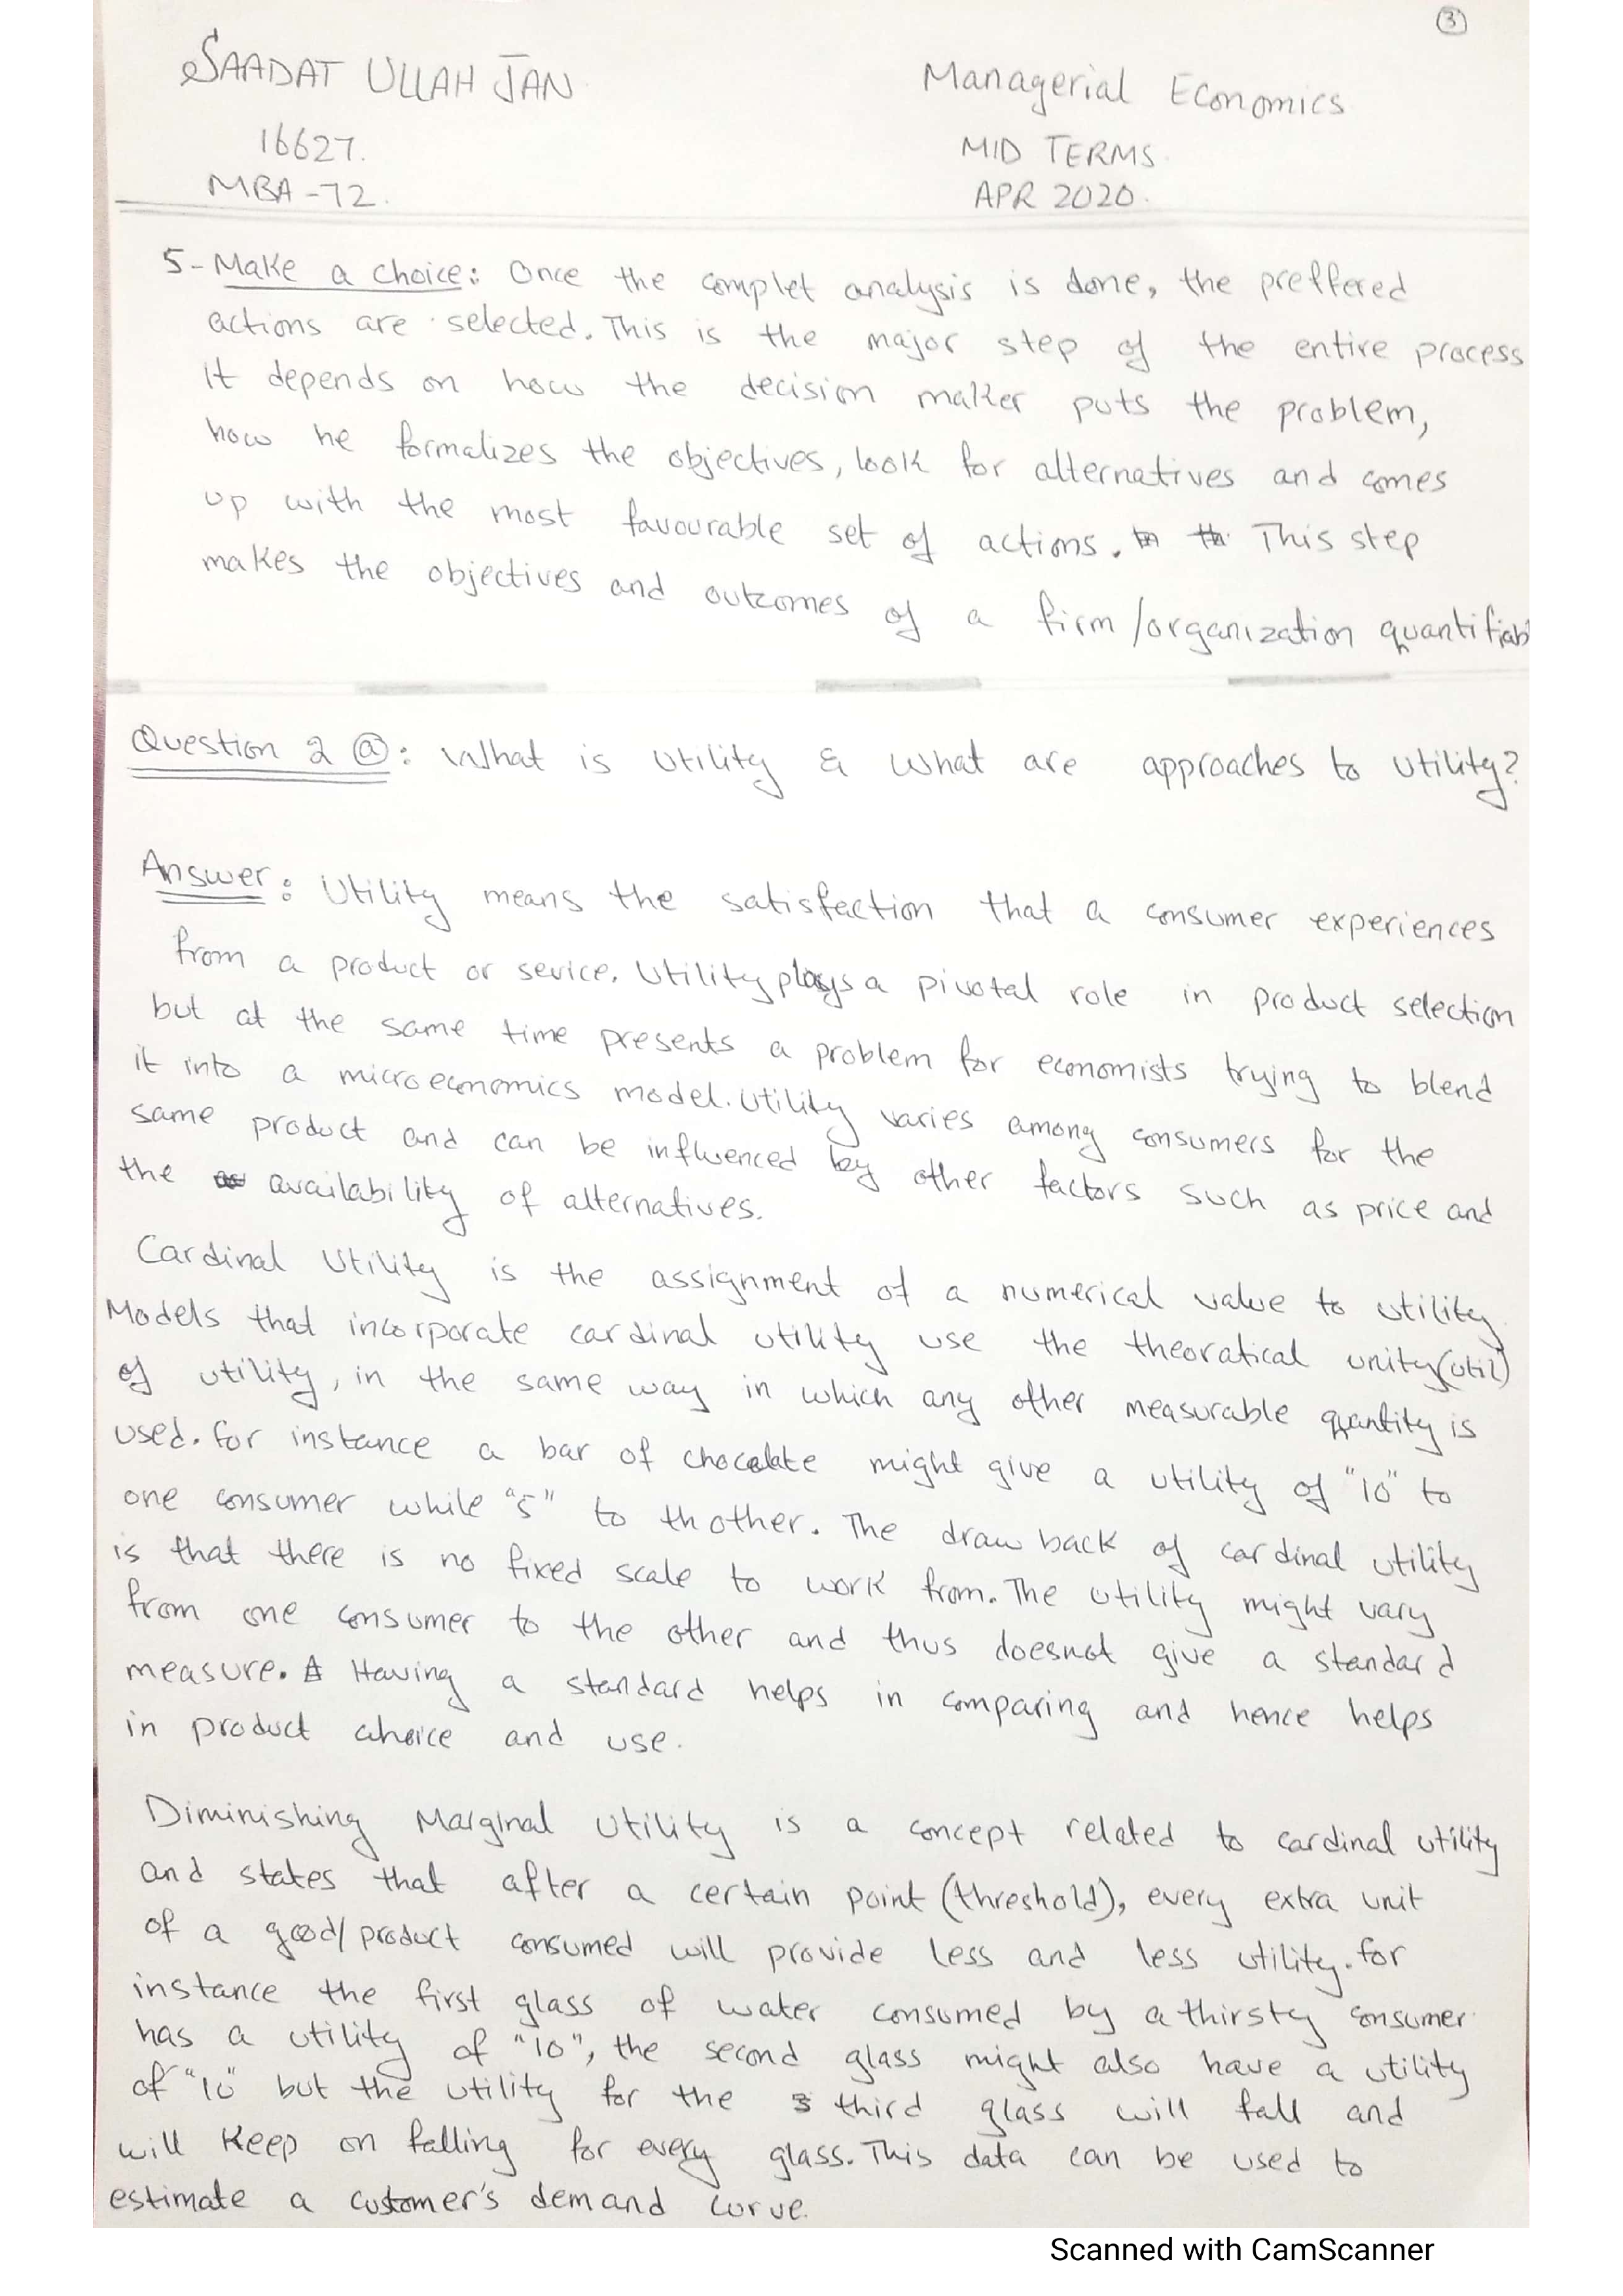 3
SAADAT ULLAH JAN
Managerial Economics
16627.
MID TERMS.
MBA-72.
APR 2020.
5- Make a choice: Once the complet analysis is done, the preffered
actions are selected. This is the major step of the entire process
It depends on how the decision maker puts the problem,
how he formalizes the objectives, look for alternatives and comes
up with the most favourable set of actions. This step
makes the objectives and outcomes of a firm/organization quantifiab
Question 2 (a): What is Utility & what are approaches to utility?
Answer: Utility means the satisfaction that a consumer experiences
from a product or sevice. Utility plays a pivotal role in product selection
but at the same time presents a problem for economists trying to blend
it into a microeconomics model. Utility varies among consumers for the
same product and can be influenced by other factors such as price and
the availability of alternatives.
Cardinal Utility is the assignment of a numerical value to utility.
Models that incorporate cardinal utility use the theoratical unity(util)
of utility, in the same way in which any other measurable quantity is
used. for instance a bar of chocolate might give a utility of "10" to
one consumer while "5" to thother. The drawback of cardinal utility
is that there is no fixed scale to work from. The utility might vary
from one consumer to the other and thus doesnot give a standard
measure. Having a standard helps in comparing and hence helps
in product choice and use.
Diminishing Marginal Utility is a concept related to cardinal utility
and states that after a certain point (threshold), every extra unit
of a good/product consumed will provide less and less utility. for
instance the first glass of water consumed by a thirsty consumer
has a utility of "10", the second glass might also have a utility
of "10" but the utility for the third glass will fall and
will keep on falling for every glass. This data can be used to
estimate a customer's demand curve.
Scanned with CamScanner